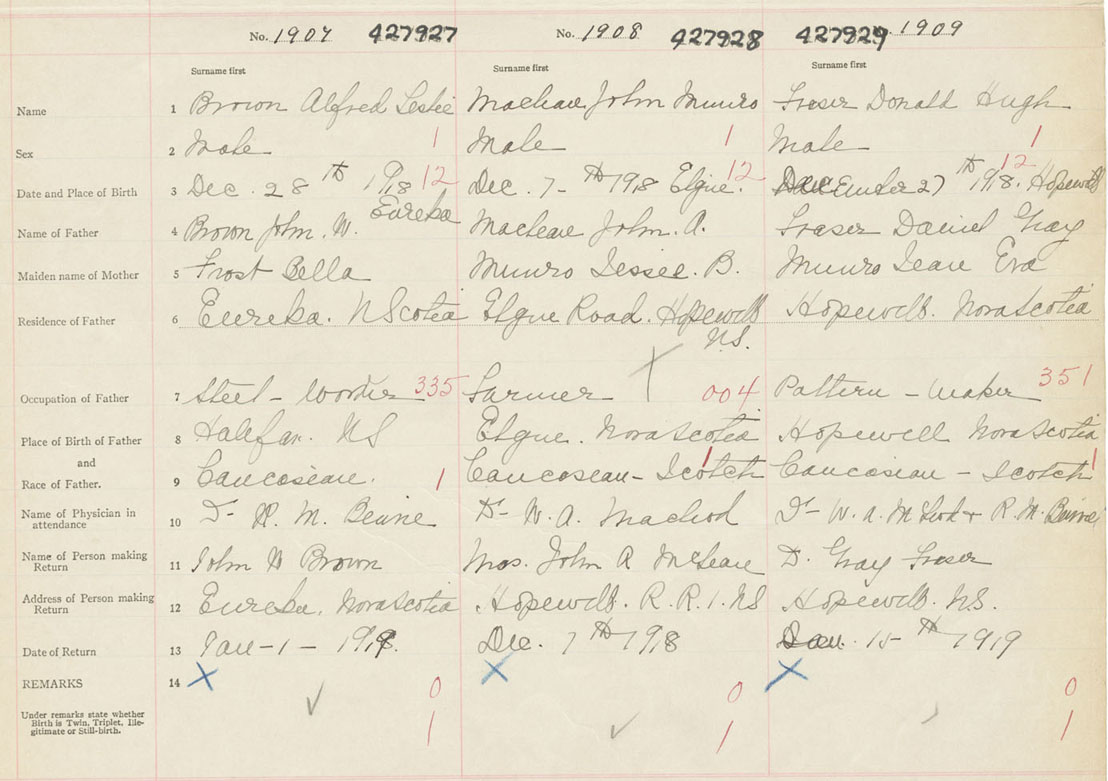 No. 1907 427927 No. 1908 427928 427929 1909
Surname first Surname first Surname first
Name 1 Brown Alfred Leslie Maclean John Munro Fraser Donald Hugh
Sex 2 Male 1 Male 1 Male 1
Date and Place of Birth 3 Dec. 28th 1918 12 Dec. 7-th 1918 Elgin. 12 December 27th 1918. 12 Hopewell
Eureka
Name of Father 4 Brown John. W. Maclean John. A. Fraser Daniel Gray
Maiden name of Mother 5 Frost Bella Munro Jessie. B. Munro Jean Eva
Residence of Father 6 Eureka. N Scotia Elgin Road. Hopewell Hopewell. Nova Scotia
N.S.
Occupation of Father 7 Steel - Worker 335 Farmer 004 Pattern - Maker 351
Place of Birth of Father 8 Halifax. NS Elgin. Nova Scotia Hopewell Nova Scotia
and
Race of Father. 9 Caucasean. 1 Caucosean - Scotch 1 Caucosean - Scotch 1
Name of Physician in
attendance 10 Dr H. M. Beine Dr- W. A. Macleod Dr- W. A. McLeod + R. M. Beine
Name of Person making
Return 11 John W Brown Mrs. John A McLean D. Gray Fraser
Address of Person making
Return 12 Eureka. Nova Scotia Hopewell. R. R. 1. NS Hopewell. N.S.
Date of Return 13 Jan - 1 - 1919. Dec. 7th 1918 Jan. 15-th 1919
REMARKS 14 X X X
0 0 0
Under remarks state whether
Birth is Twin, Triplet, Ille-
gitimate or Still-birth. 1 1 1